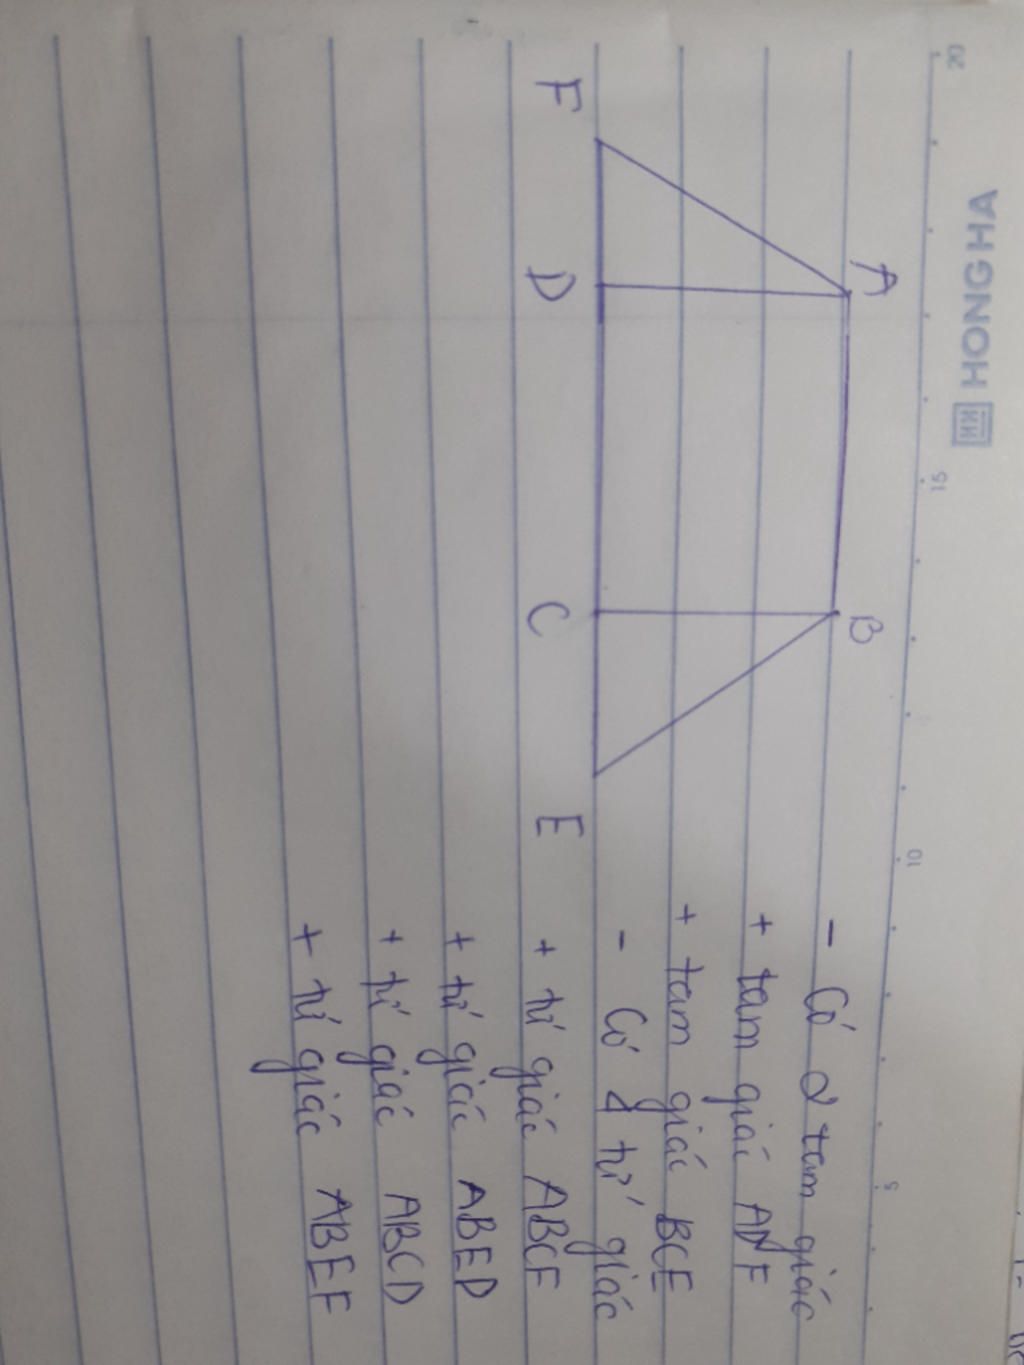 HONG HA
20
15
10
5
A
B
F
D
C
E
- Có 2 tam giác
+ tam giác ADF
+ tam giác BCE
- Có 4 tứ giác
+ tứ giác ABCF
+ tứ giác ABED
+ tứ giác ABCD
+ tứ giác ABEF